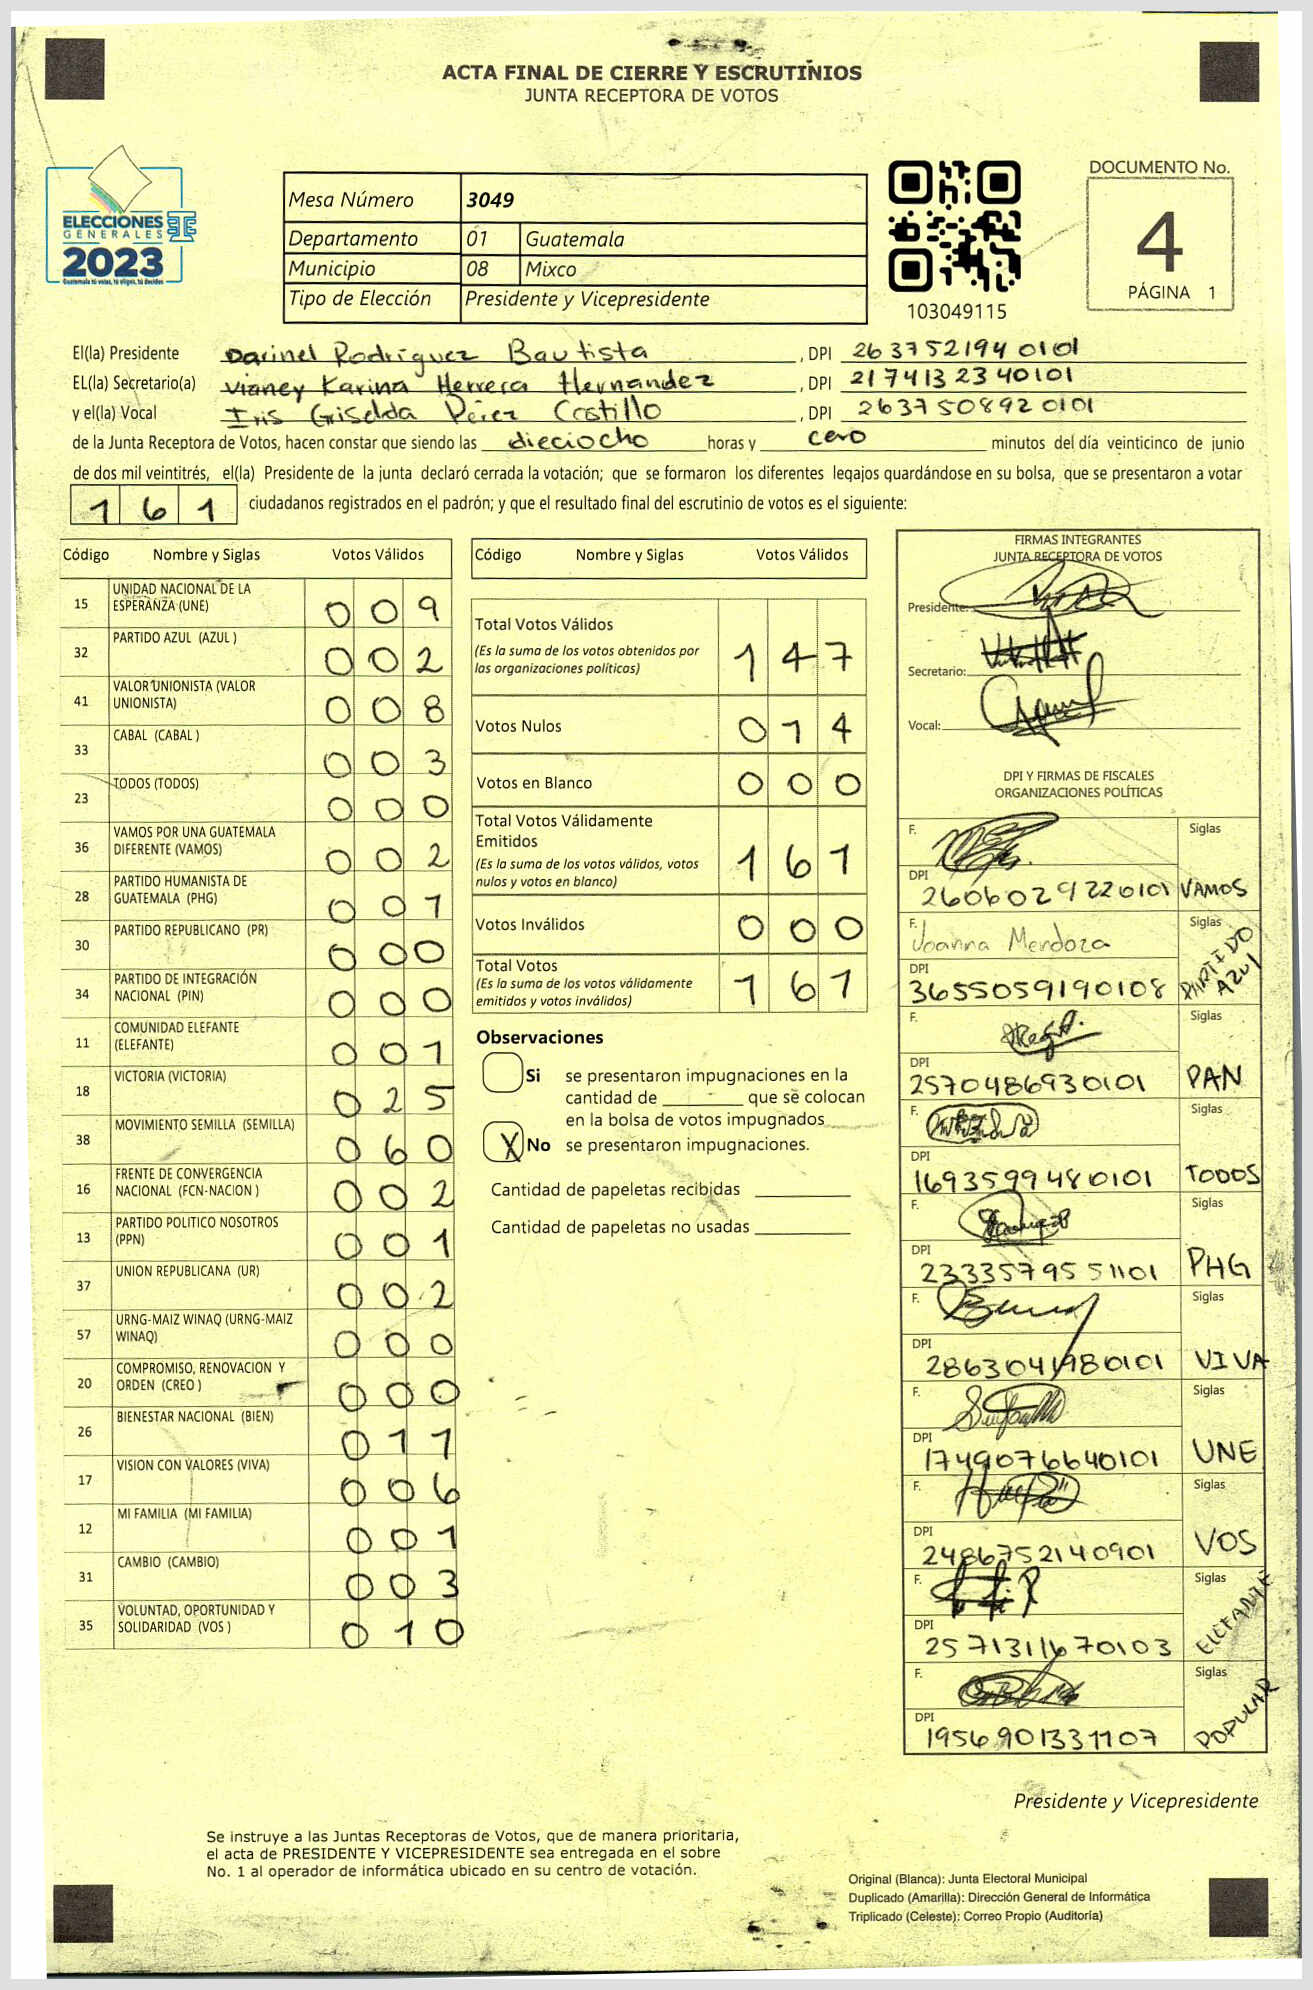 ACTA FINAL DE CIERRE Y ESCRUTINIOS
JUNTA RECEPTORA DE VOTOS
ELECCIONES
GENERALES
2023
Guatemala tú votas, tú eliges, tú decides
Mesa Número 3049
Departamento 01 Guatemala
Municipio 08 Mixco
Tipo de Elección Presidente y Vicepresidente
103049115
DOCUMENTO No.
4
PÁGINA 1
El(la) Presidente Darinel Rodríguez Bautista , DPI 2637521940101
EL(la) Secretario(a) Vianey Karina Herrera Hernandez , DPI 2174132340101
y el(la) Vocal Iris Giselda Pérez Castillo , DPI 2637508920101
de la Junta Receptora de Votos, hacen constar que siendo las dieciocho horas y cero minutos del día veinticinco de junio
de dos mil veintitrés, el(la) Presidente de la junta declaró cerrada la votación; que se formaron los diferentes legajos guardándose en su bolsa, que se presentaron a votar
161 ciudadanos registrados en el padrón; y que el resultado final del escrutinio de votos es el siguiente:
Código Nombre y Siglas Votos Válidos
15 UNIDAD NACIONAL DE LA
ESPERANZA (UNE) 009
32 PARTIDO AZUL (AZUL ) 002
41 VALOR UNIONISTA (VALOR
UNIONISTA) 008
33 CABAL (CABAL ) 003
23 TODOS (TODOS) 000
36 VAMOS POR UNA GUATEMALA
DIFERENTE (VAMOS) 002
28 PARTIDO HUMANISTA DE
GUATEMALA (PHG) 001
30 PARTIDO REPUBLICANO (PR) 000
34 PARTIDO DE INTEGRACIÓN
NACIONAL (PIN) 000
11 COMUNIDAD ELEFANTE
(ELEFANTE) 001
18 VICTORIA (VICTORIA) 025
38 MOVIMIENTO SEMILLA (SEMILLA) 060
16 FRENTE DE CONVERGENCIA
NACIONAL (FCN-NACION ) 002
13 PARTIDO POLITICO NOSOTROS
(PPN) 001
37 UNION REPUBLICANA (UR) 002
57 URNG-MAIZ WINAQ (URNG-MAIZ
WINAQ) 000
20 COMPROMISO, RENOVACION Y
ORDEN (CREO ) 000
26 BIENESTAR NACIONAL (BIEN) 011
17 VISION CON VALORES (VIVA) 006
12 MI FAMILIA (MI FAMILIA) 001
31 CAMBIO (CAMBIO) 003
35 VOLUNTAD, OPORTUNIDAD Y
SOLIDARIDAD (VOS ) 010
Código Nombre y Siglas Votos Válidos
Total Votos Válidos
(Es la suma de los votos obtenidos por
las organizaciones políticas) 147
Votos Nulos 014
Votos en Blanco 000
Total Votos Válidamente
Emitidos
(Es la suma de los votos válidos, votos
nulos y votos en blanco) 161
Votos Inválidos 000
Total Votos
(Es la suma de los votos válidamente
emitidos y votos inválidos) 161
Observaciones
Si se presentaron impugnaciones en la
cantidad de ________ que se colocan
en la bolsa de votos impugnados
X No se presentaron impugnaciones.
Cantidad de papeletas recibidas
Cantidad de papeletas no usadas
FIRMAS INTEGRANTES
JUNTA RECEPTORA DE VOTOS
Presidente:
Secretario:
Vocal:
DPI Y FIRMAS DE FISCALES
ORGANIZACIONES POLÍTICAS
F. Siglas
DPI
2606029220101 VAMOS
F. Joanna Mendoza Siglas
DPI
3655059190108 PARTIDO AZUL
F. Siglas
DPI
2570486930101 PAN
F. Siglas
DPI
1693599480101 TODOS
F. Siglas
DPI
2333579551101 PHG
F. Siglas
DPI
2863041980101 VIVA
F. Siglas
DPI
1749076640101 UNE
F. Siglas
DPI
2486752140901 VOS
F. Siglas
DPI
2571311670103 ELEFANTE
F. Siglas
DPI
1956901331107 POPULAR
Presidente y Vicepresidente
Se instruye a las Juntas Receptoras de Votos, que de manera prioritaria,
el acta de PRESIDENTE Y VICEPRESIDENTE sea entregada en el sobre
No. 1 al operador de informática ubicado en su centro de votación.
Original (Blanca): Junta Electoral Municipal
Duplicado (Amarilla): Dirección General de Informática
Triplicado (Celeste): Correo Propio (Auditoría)